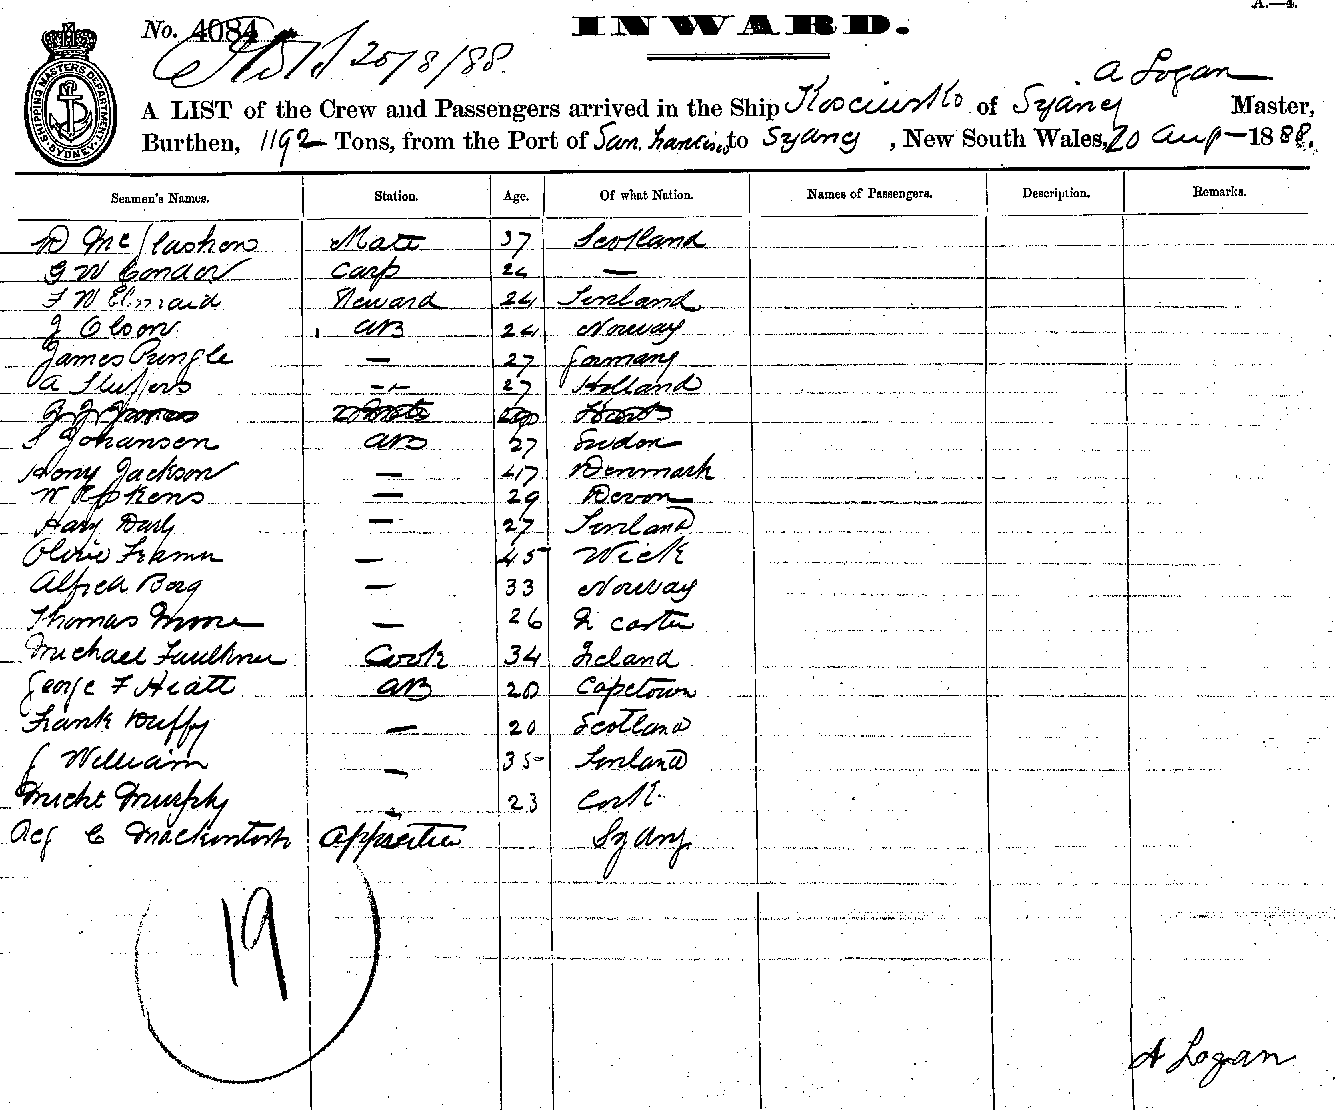 A.—4.
No. 4084
INWARD.
20/8/88.
A Logan
A LIST of the Crew and Passengers arrived in the Ship Kosciusko of Sydney Master,
Burthen, 1192 Tons, from the Port of San. Francisco to Sydney, New South Wales, 20 Aug - 1888.
SHIPPING MASTERS DEPARTMENT SYDNEY
Seamen's Names. Station. Age. Of what Nation. Names of Passengers. Description. Remarks.
D McGlashen Mate 37 Scotland
G W Condor Carp 24 —
F W 24 Finland
J Olson AB 24 Norway
James Pringle — 27 Germany
A 27 Holland
Johansen AB 27
Hony Jackson — 47 Denmark
W — 29 Devon
Hary Darly — 27 Finland
— 45 Wick
Alfred Berg — 33 Norway
Thomas Moore — 26
Michael Faulkner Cook 34 Ireland
George F Hiatt AB 20 Capetown
Frank Duffy — 20 Scotland
J William — 35 Finland
Micht Murphy — 23 Cork
C Mackintosh Sydney
19
A Logan